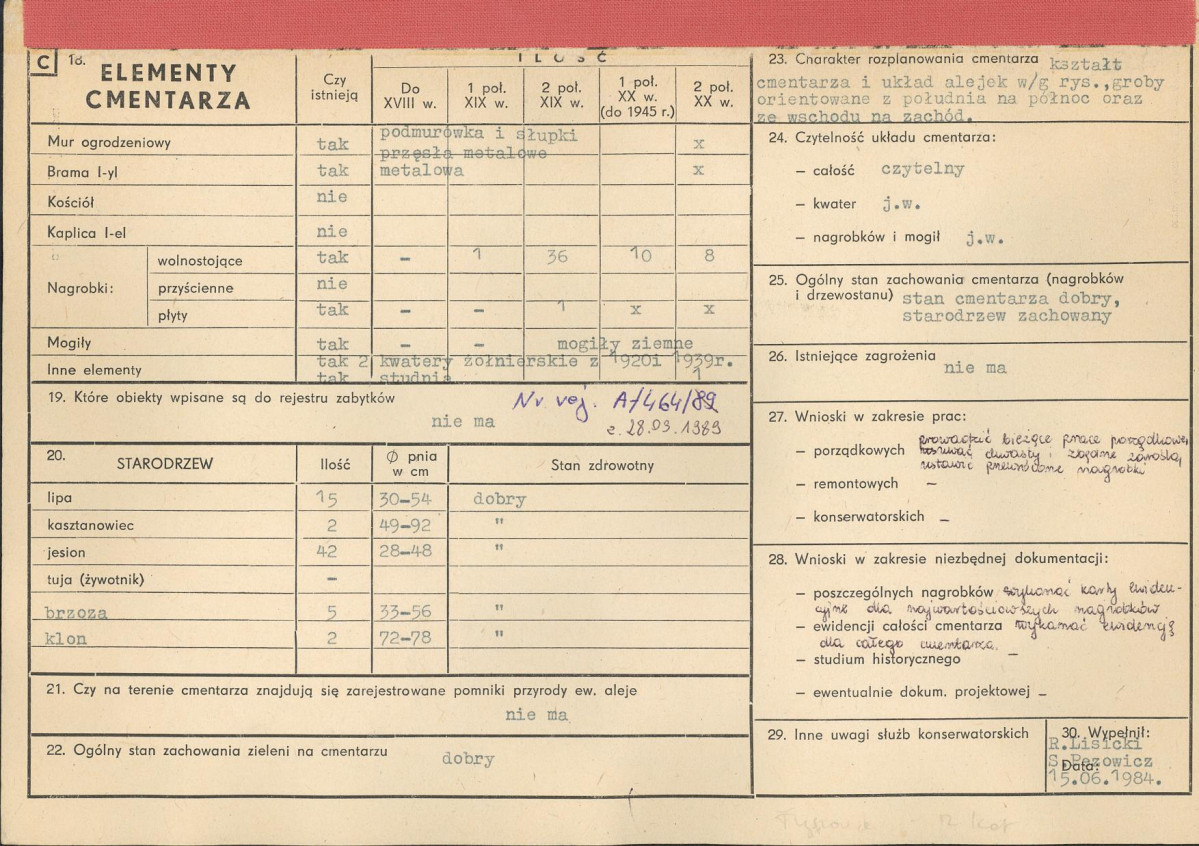 C 18. ELEMENTY CMENTARZA
Czy istnieją
ILOŚĆ
Do XVIII w.
1 poł. XIX w.
2 poł. XIX w.
1 poł. XX w. (do 1945 r.)
2 poł. XX w.
Mur ogrodzeniowy tak podmurówka i słupki przęsła metalowe x
Brama I-yl tak metalowa x
Kościół nie
Kaplica I-el nie
Nagrobki: wolnostojące tak - 1 36 10 8
przyścienne nie
płyty tak - - 1 x x
Mogiły tak - - mogiły ziemne
Inne elementy tak 2 kwatery żołnierskie z 1920i 1939r.
tak studnia 1
19. Które obiekty wpisane są do rejestru zabytków
nie ma
Nr rej. A/464/89
z. 28.03.1989
20. STARODRZEW Ilość Ø pnia w cm Stan zdrowotny
lipa 15 30-54 dobry
kasztanowiec 2 49-92 "
jesion 42 28-48 "
tuja (żywotnik) -
brzoza 5 33-56 "
klon 2 72-78 "
21. Czy na terenie cmentarza znajdują się zarejestrowane pomniki przyrody ew. aleje
nie ma
22. Ogólny stan zachowania zieleni na cmentarzu
dobry
23. Charakter rozplanowania cmentarza kształt
cmentarza i układ alejek w/g rys.,groby
orientowane z południa na północ oraz
ze wschodu na zachód.
24. Czytelność układu cmentarza:
– całość czytelny
– kwater j.w.
– nagrobków i mogił j.w.
25. Ogólny stan zachowania cmentarza (nagrobków
i drzewostanu) stan cmentarza dobry,
starodrzew zachowany
26. Istniejące zagrożenia
nie ma
27. Wnioski w zakresie prac:
prowadzić bieżące prace porządkowe,
– porządkowych usuwać chwasty i zbędne zarośla,
ustawić przewrócone nagrobki
– remontowych –
– konserwatorskich –
28. Wnioski w zakresie niezbędnej dokumentacji:
– poszczególnych nagrobków wykonać karty ewiden-
cyjne dla najwartościowszych nagrobków
– ewidencji całości cmentarza wykonać ewidencję
dla całego cmentarza.
– studium historycznego –
– ewentualnie dokum. projektowej –
29. Inne uwagi służb konserwatorskich
30. Wypełnił:
R.Lisicki
S.Pezowicz
Data:
15.06.1984.